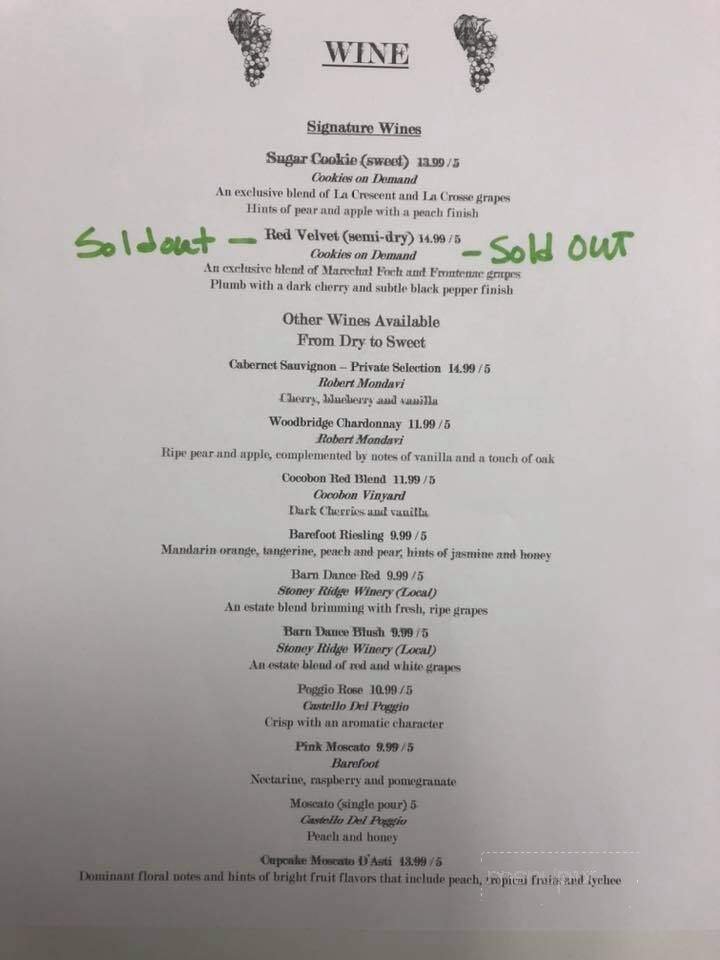 WINE
Signature Wines
Sugar Cookie (sweet) 13.99 / 5
Cookies on Demand
An exclusive blend of La Crescent and La Crosse grapes
Hints of pear and apple with a peach finish
Sold out - Red Velvet (semi-dry) 14.99 / 5 - Sold OUT
Cookies on Demand
An exclusive blend of Marechal Foch and Frontenac grapes
Plumb with a dark cherry and subtle black pepper finish
Other Wines Available
From Dry to Sweet
Cabernet Sauvignon – Private Selection 14.99 / 5
Robert Mondavi
Cherry, blueberry and vanilla
Woodbridge Chardonnay 11.99 / 5
Robert Mondavi
Ripe pear and apple, complemented by notes of vanilla and a touch of oak
Cocobon Red Blend 11.99 / 5
Cocobon Vinyard
Dark Cherries and vanilla
Barefoot Riesling 9.99 / 5
Mandarin orange, tangerine, peach and pear, hints of jasmine and honey
Barn Dance Red 9.99 / 5
Stoney Ridge Winery (Local)
An estate blend brimming with fresh, ripe grapes
Barn Dance Blush 9.99 / 5
Stoney Ridge Winery (Local)
An estate blend of red and white grapes
Poggio Rose 10.99 / 5
Castello Del Poggio
Crisp with an aromatic character
Pink Moscato 9.99 / 5
Barefoot
Nectarine, raspberry and pomegranate
Moscato (single pour) 5
Castello Del Poggio
Peach and honey
Cupcake Moscato D'Asti 13.99 / 5
Dominant floral notes and hints of bright fruit flavors that include peach, tropical fruits and lychee